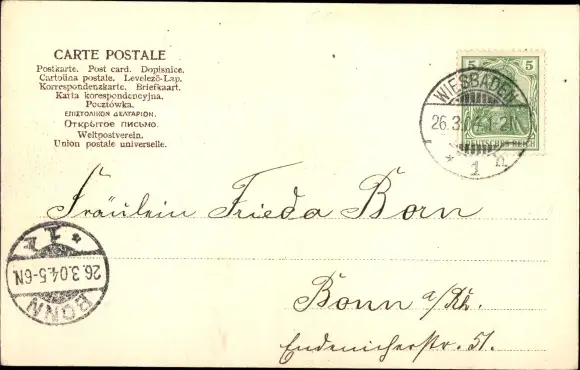 CARTE POSTALE
Postkarte. Post card. Dopisnice.
Cartolina postale. Levelező-Lap.
Korrespondenzkarte. Briefkaart.
Karta korespondencyjna.
Pocztówka.
ΕΠΙΣΤΟΛΙΚΟΝ ΔΕΛΤΑΡΙΟΝ.
Открытое письмо.
Weltpostverein.
Union postale universelle.
5 5
DEUTSCHES REICH
WIESBADEN
26.3.04. 1-2N
* 1 n
Fräulein Frieda Born
Bonn a/Rh.
Endenicherstr. 51.
BONN
26.3.04.5-6N
* 1